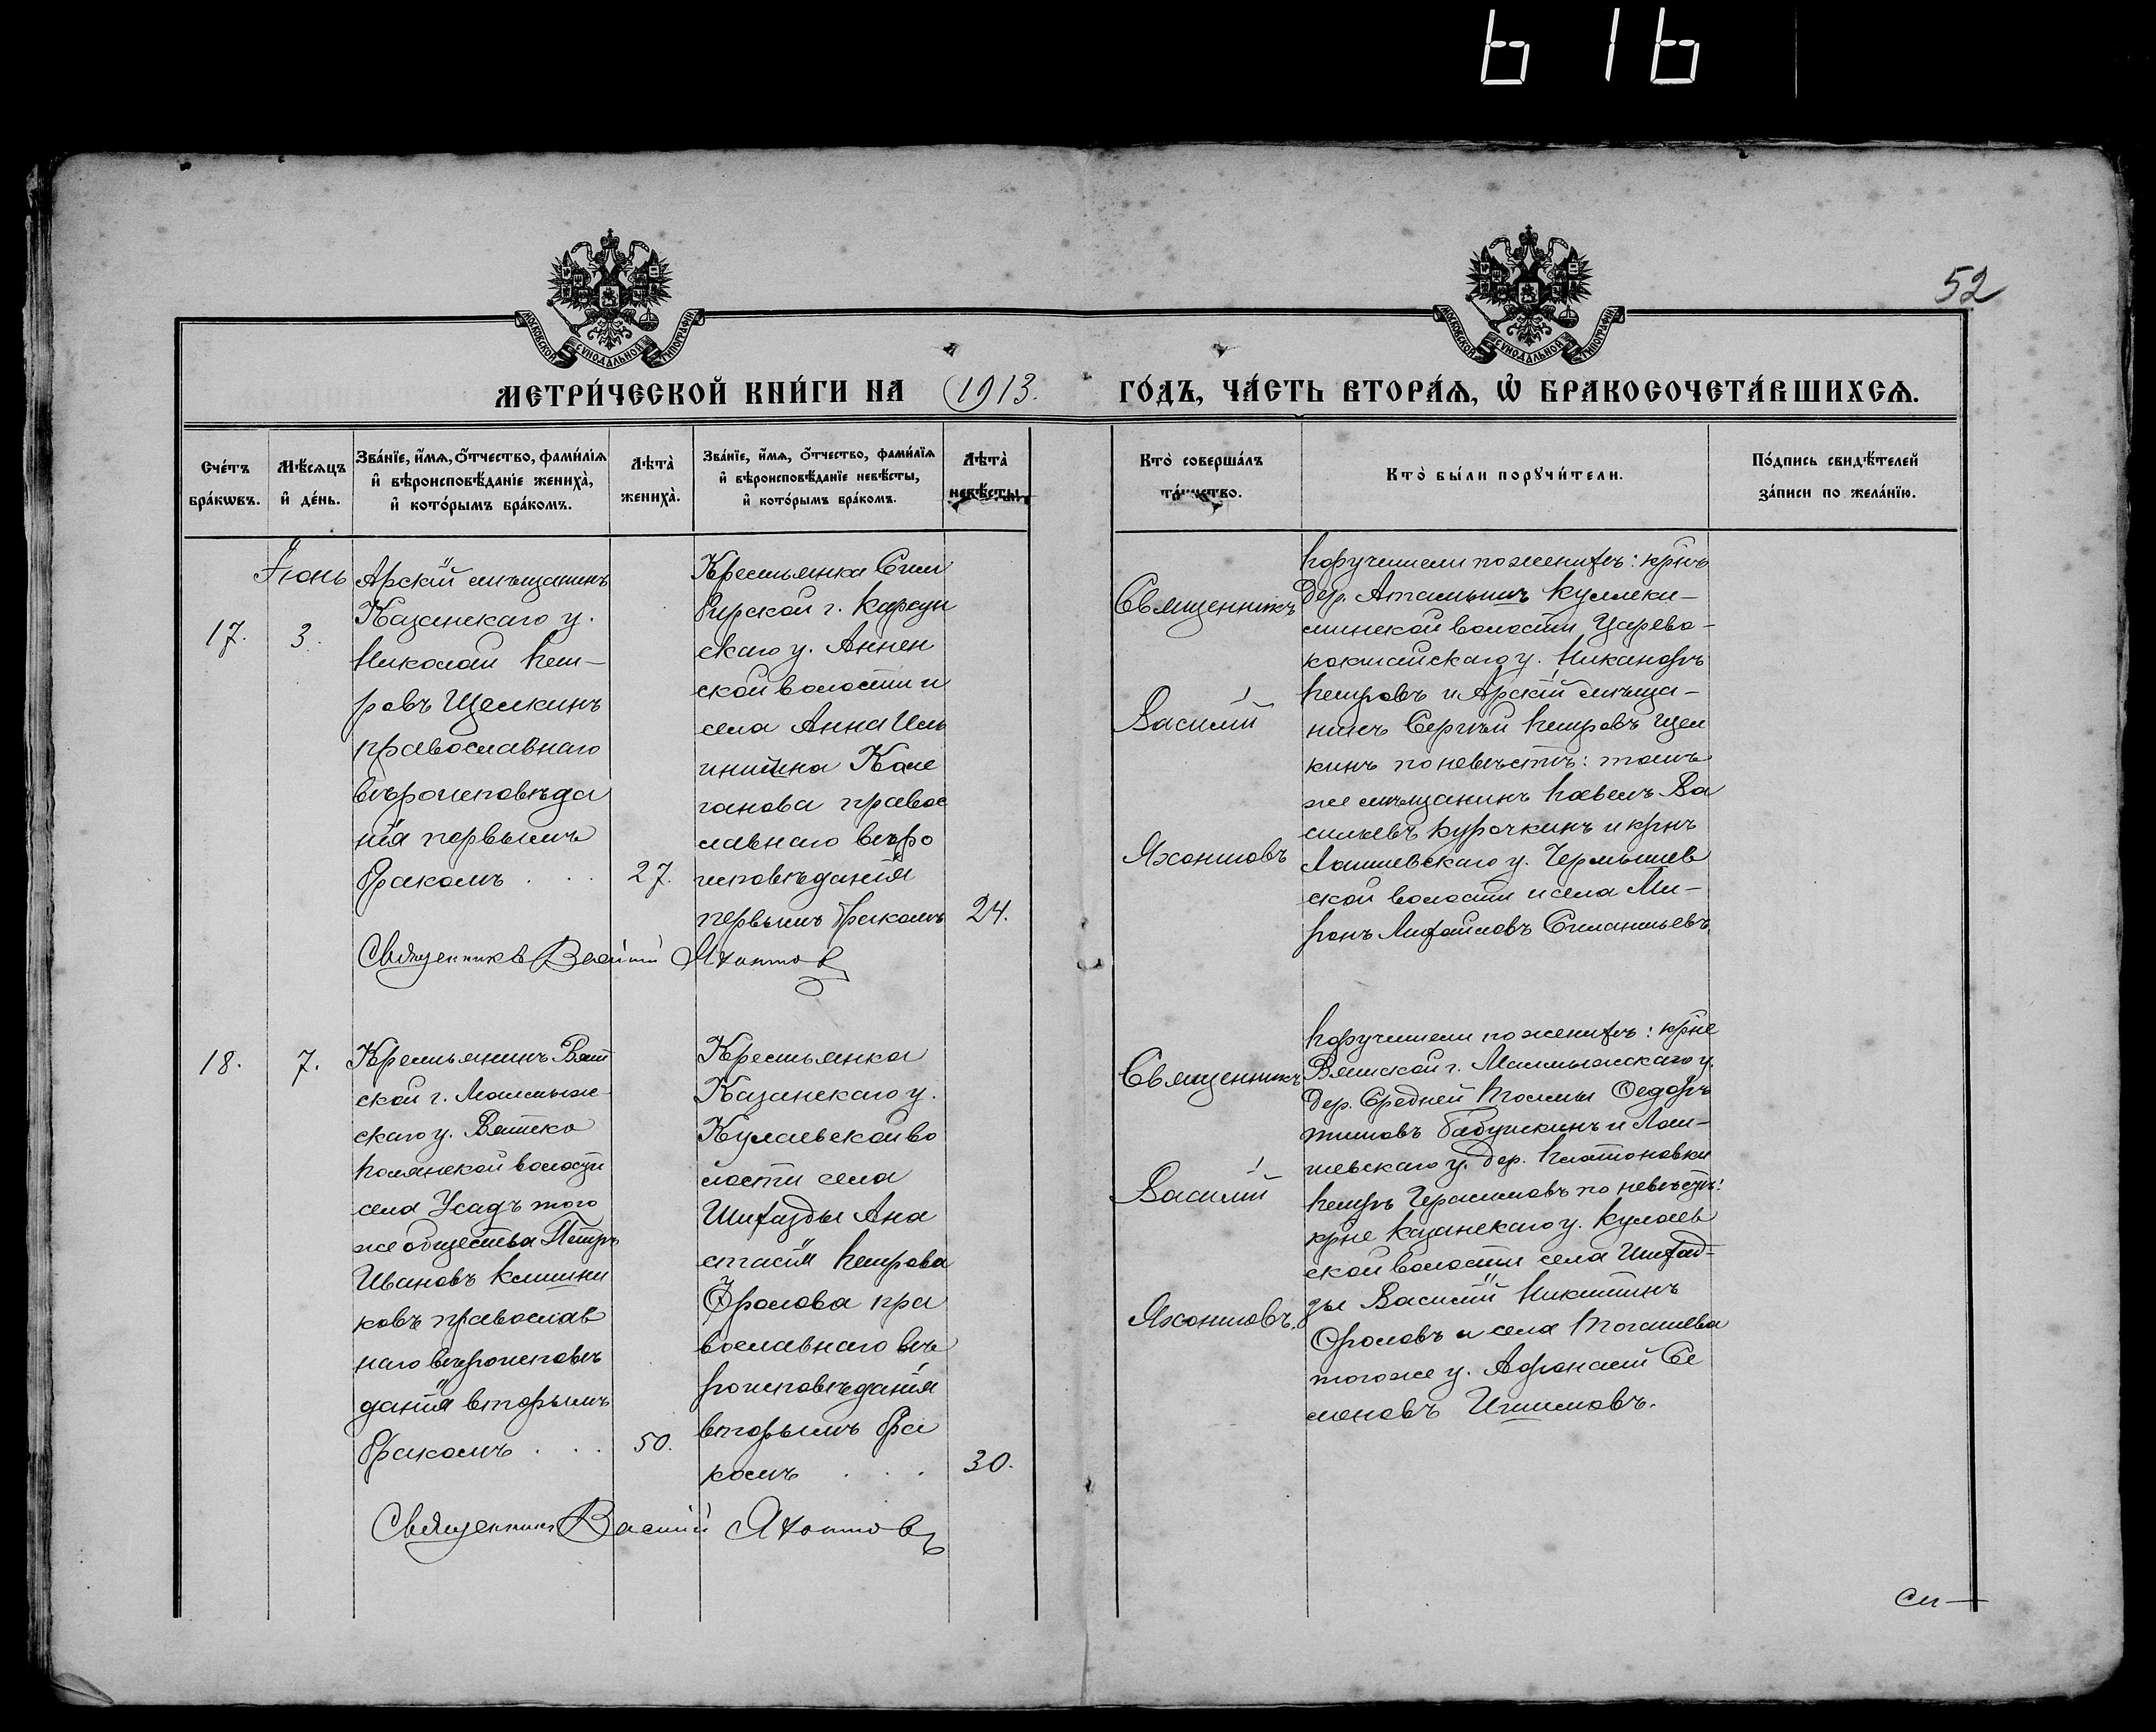 616
52
МОСКОВСКОЙ СѴНОДАЛЬНОЙ ТИПОГРАФІИ
МОСКОВСКОЙ СѴНОДАЛЬНОЙ ТИПОГРАФІИ
МЕТРИ́ЧЕСКОЙ КНИ́ГИ НА 1913. ГО́ДЪ, ЧА́СТЬ ВТОРА́Ѧ, Ѽ БРАКОСОЧЕТА́ВШИХСѦ.
Сче́тъ бра́кѡвъ.
Мѣ́сяцъ и҆ де́нь.
Зва́нїе, и҆́мѧ, ѻ҆́тчество, фами́лїѧ
и҆ вѣроисповѣ́данїе жениха̀,
и҆ кото́рымъ бра́комъ.
Лѣта̀ жениха̀.
Зва́нїе, и҆́мѧ, ѻ҆́тчество, фами́лїѧ
и҆ вѣроисповѣ́данїе невѣ́сты,
и҆ кото́рымъ бра́комъ.
Лѣта̀ невѣ́сты.
Кто̀ соверша́лъ та́инство.
Кто̀ бы́ли порꙋчи́тели.
По́дпись свидѣ́телей
за́писи по жела́нїю.
17.
Іюнь
3.
Арскій мѣщанинъ
Казанскаго у.
Николай Пет-
ровъ Щелкинъ
православнаго
вѣроисповѣда
нія первымъ
бракомъ . . .
27.
Крестьянка Сим
бирской г. Карсун
скаго у. Аннен
ской волости и
села Анна Иль
инична
православнаго вѣро
исповѣданія
первымъ бракомъ
24.
Священникъ Василій Яхонтов
Священникъ
Василій
Яхонтовъ
Поручители по женихѣ: крнъ
дер. Атамышъ Кулеки-
минской волости Царево-
кокшайскаго у. Никаноръ
Петровъ и Арскій мѣща-
нинъ Сергѣй Петровъ Щел
кинъ по невѣстѣ: тотъ
же мѣщанинъ Павелъ Ва
сильевъ Курочкинъ и крнъ
Лаишевскаго у. Чермышев
ской волости и села Ми-
ронъ Михайловъ Силантьевъ.
18.
7.
Крестьянинъ Вят
ской г. Малмыж-
скаго у. Вятско
Полянской волости
села Усадъ того
же общества Петръ
Ивановъ
ковъ православ
наго вѣроисповѣ
данія вторымъ
бракомъ . . .
50.
Крестьянка
Казанскаго у.
Кулаевской во
лости села
Шигазды Ана
стасія Петрова
Фролова пра
вославнаго вѣ
роисповѣданія
вторымъ бра
комъ . . .
30.
Священникъ Василій Яхонтовъ
Священникъ
Василій
Яхонтовъ.
Поручители по женихѣ: крне
Вятской г. Малмыжскаго у.
дер. Средней Тоймы Ѳедоръ
Бабушкинъ и Лаи-
шевскаго у. дер. Платоновки
Петръ Герасимовъ по невѣстѣ:
крне Казанскаго у. Кулаев
ской волости села Шигаз-
ды Василій Никитинъ
Фроловъ и села Тогашева
того же у. Афанасій Се
меновъ
См